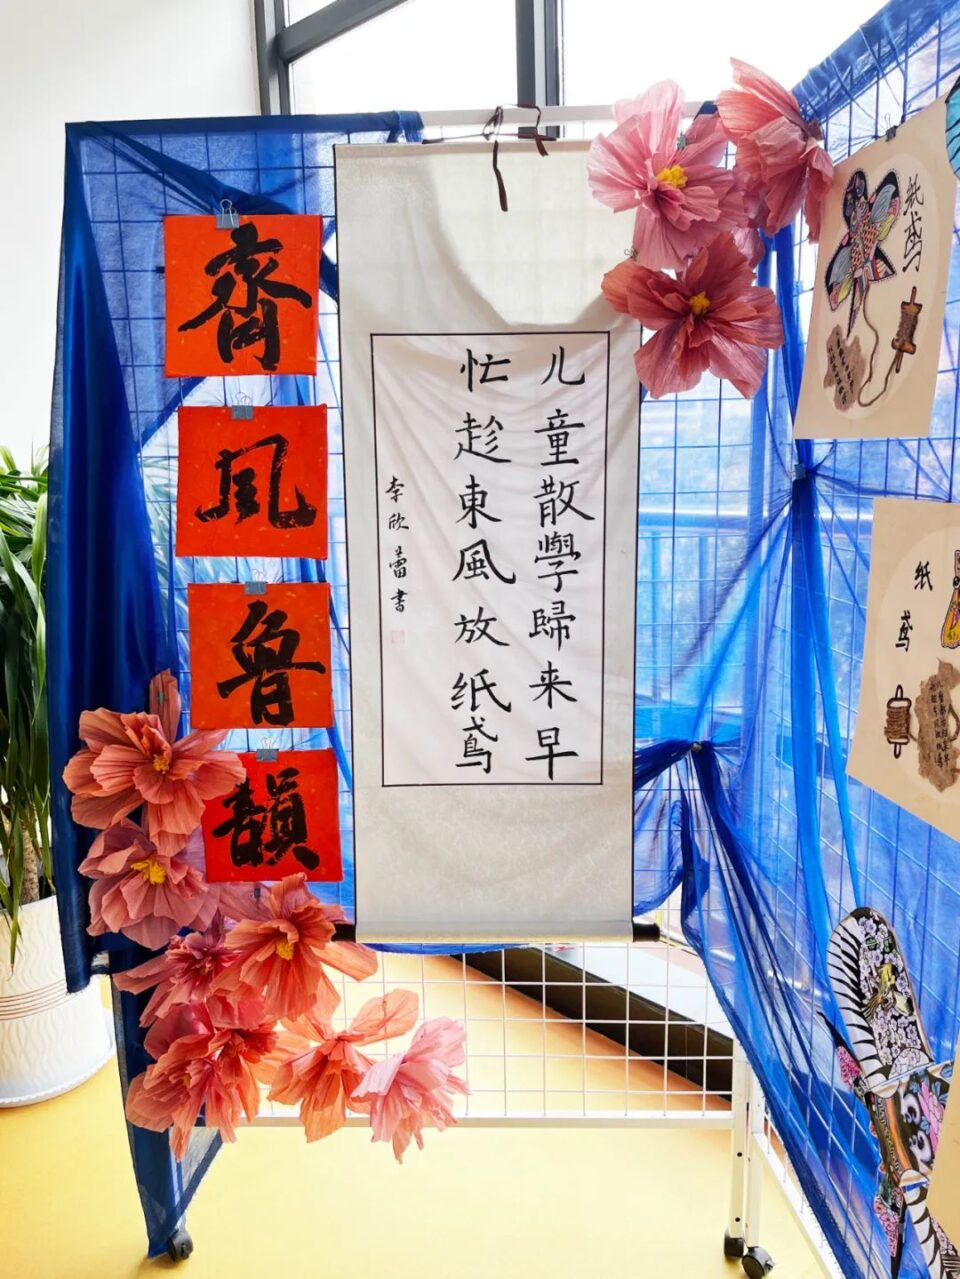 齊
風
魯
韻
儿童散學歸来早
忙趁東風放纸鳶
李欣蕾書
纸鸢
纸鸢